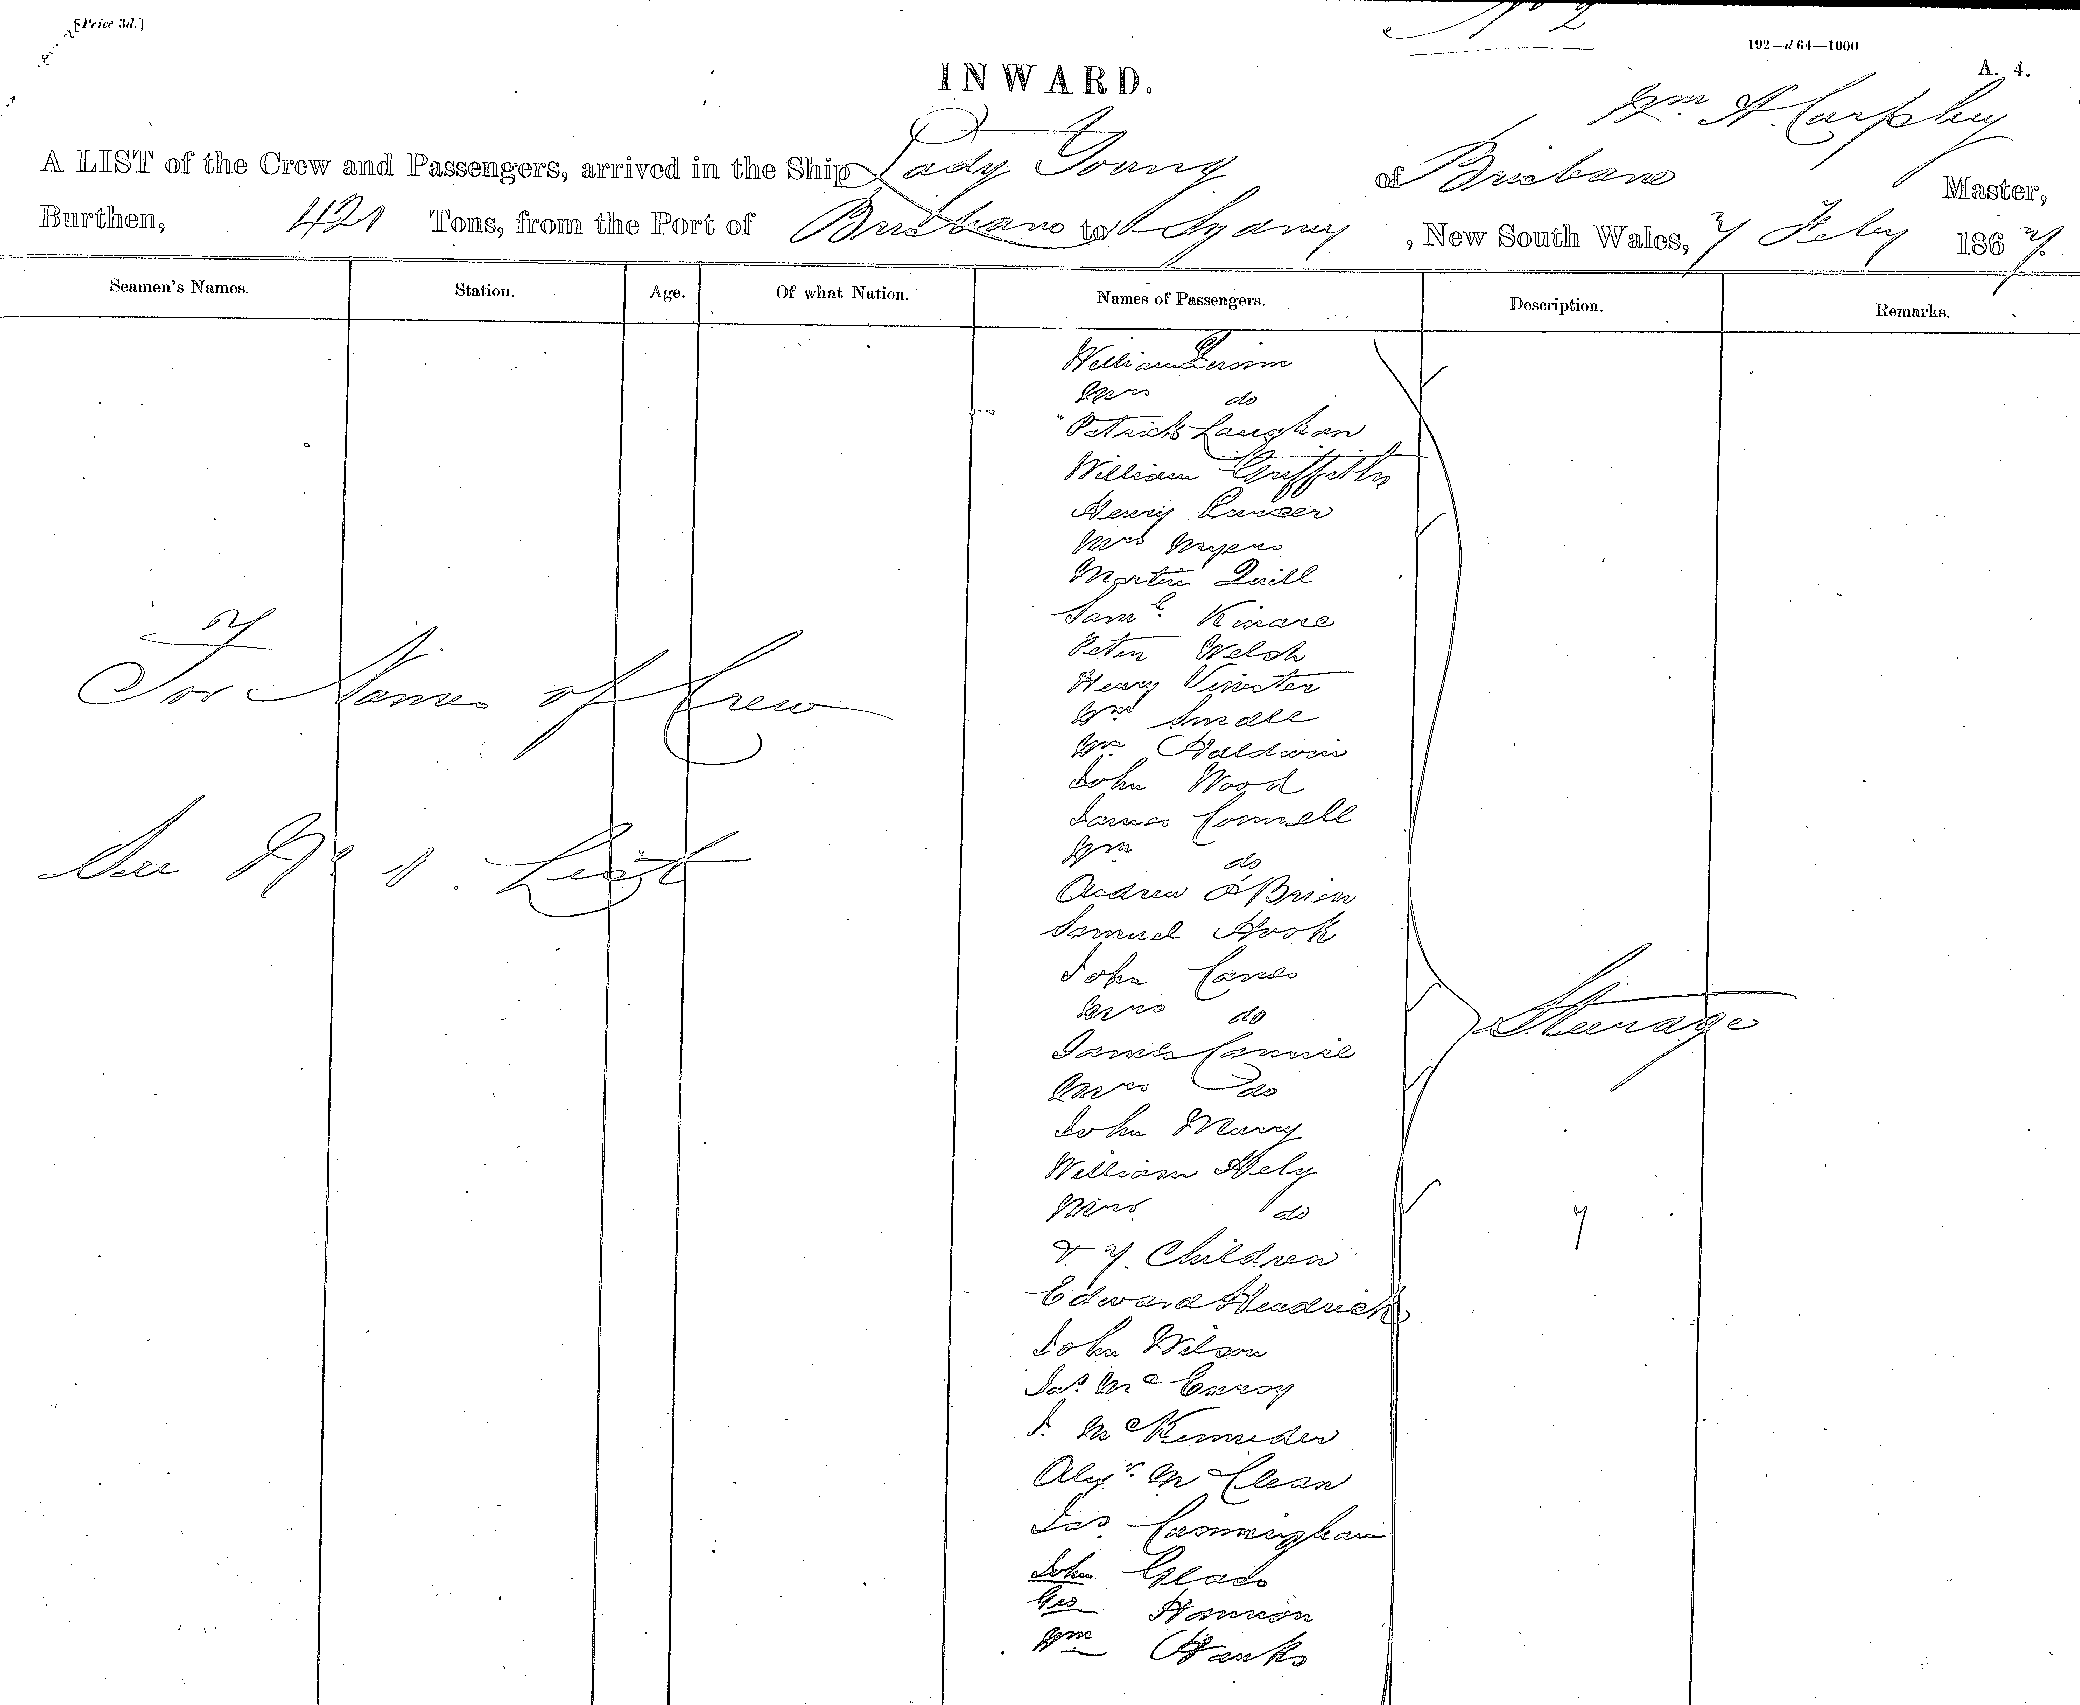 [Price 3d.]
No 2
192—d 64—1000
A. 4.
INWARD.
Wm H. Curphey
A LIST of the Crew and Passengers, arrived in the Ship Lady Young of Brisbane Master,
Burthen, 421 Tons, from the Port of Brisbane to Sydney, New South Wales, 7 Feby 1867.
Seamen's Names. Station. Age. Of what Nation. Names of Passengers. Description. Remarks.
William
Mrs do
Patrick Laughan
William Griffiths
Henry
Mrs Myers
Martin Quill
Saml. Kinane
Peter Welsh
Henry
Wm Small
Wm Baldwin
John Wood
James Connell
Wm do
Andrew O'Brien
Samuel Hook
John
Mrs do
James
Mrs do
John
William Hely
Mrs do
& 7 Children 7
Edward Headrick
John Wilson
Jas. Mc Enroy
J. Mc
Alexr. McClean
Jas. Cunningham
John Glass
Geo
Wm Hanks
For Names of Crew
See No 1. List
Steerage